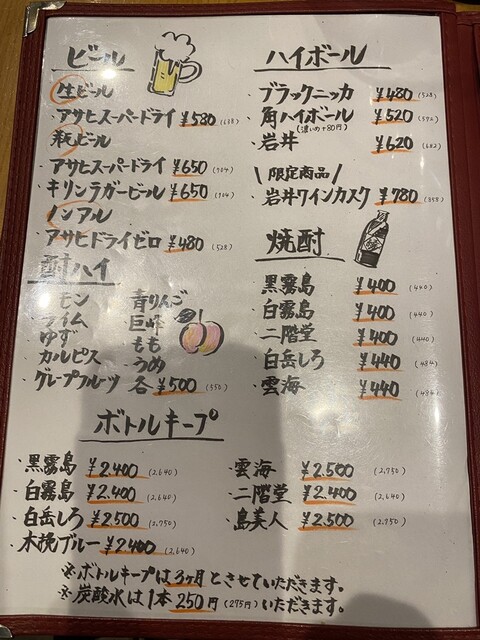 ビール
生ビール
・アサヒスーパードライ ¥580 (638)
瓶ビール
・アサヒスーパードライ ¥650 (704)
・キリンラガービール ¥650 (704)
ノンアル
・アサヒドライゼロ ¥480 (528)
酎ハイ
レモン ・青りんご
ライム ・巨峰
・ゆず ・もも
・カルピス ・うめ
・グレープフルーツ 各¥500 (550)
ハイボール
・ブラックニッカ ¥480 (528)
・角ハイボール ¥520 (572)
(濃いめ+80円)
・岩井 ¥620 (682)
\ 限定商品 /
・岩井ワインカスク ¥780 (858)
焼酎
・黒霧島 ¥400 (440)
・白霧島 ¥400 (440)
・二階堂 ¥400 (440)
・白岳しろ ¥440 (484)
・雲海 ¥440 (484)
ボトルキープ
・黒霧島 ¥2.400 (2,640)
・白霧島 ¥2.400 (2,640)
・白岳しろ ¥2.500 (2,750)
・木挽ブルー ¥2.400 (2,640)
・雲海 ¥2.500 (2,750)
・二階堂 ¥2.400 (2,640)
・島美人 ¥2.500 (2,750)
※ボトルキープは3ヶ月とさせていただきます。
※炭酸水は1本250円(275円)いただきます。